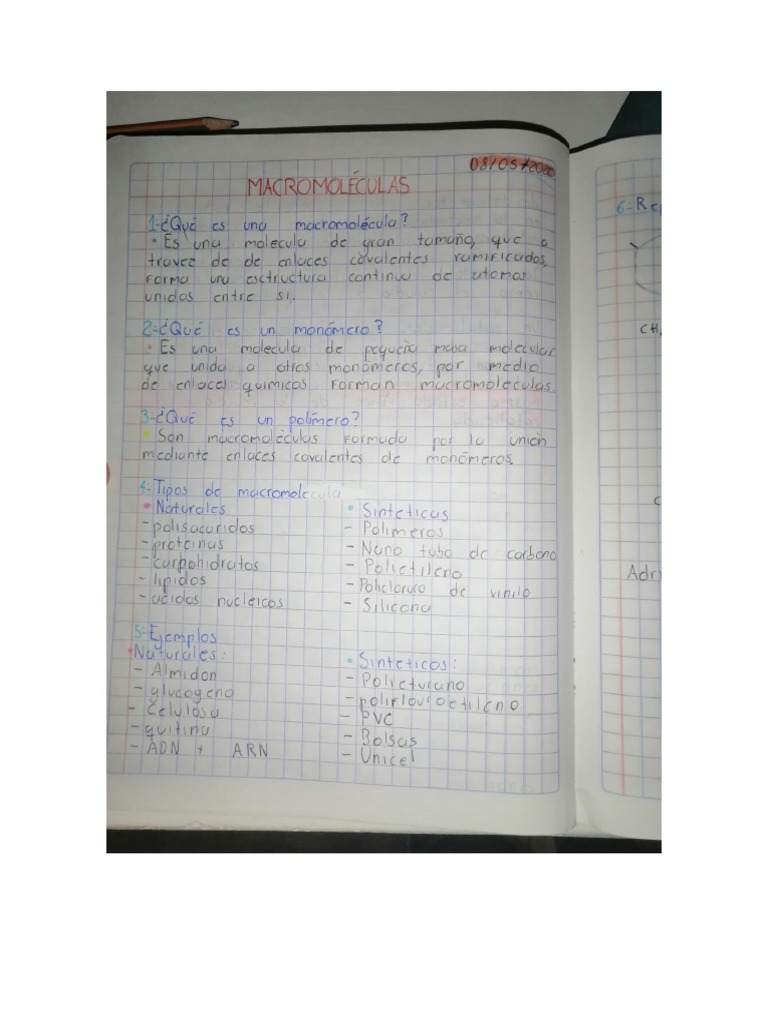 08/05/2020
MACROMOLÉCULAS
1-¿Qué es una macromolécula?
• Es una molecula de gran tamaño, que a
travez de de enlaces covalentes ramificados,
forma una esctructura continua de atomos
unidos entre si.
2-¿Qué es un monómero?
• Es una molecula de pequeña masa molecular
que unida a otros monómeros, por medio
de enlaces quimicos forman macromoleculas.
3-¿Qué es un polímero?
• Son macromoléculas formada por la unión
mediante enlaces covalentes de monómeros.
4-Tipos de macromolecula
• Naturales
- polisacaridos
- proteinas
- carpohidratos
- lipidos
- acidos nucleicos
• Sinteticas
- Polimeros
- Nano tubo de carbono
- Polietileno
- Policloruro de vinilo
- Silicona
5-Ejemplos
• Naturales:
- Almidon
- glucogeno
- Celulosa
- quitina
- ADN y ARN
• Sinteticos:
- Polieturano
- poliflouroetileno
- PVC
- Bolsas
- Unicel
6-Re
CH
C
Adr